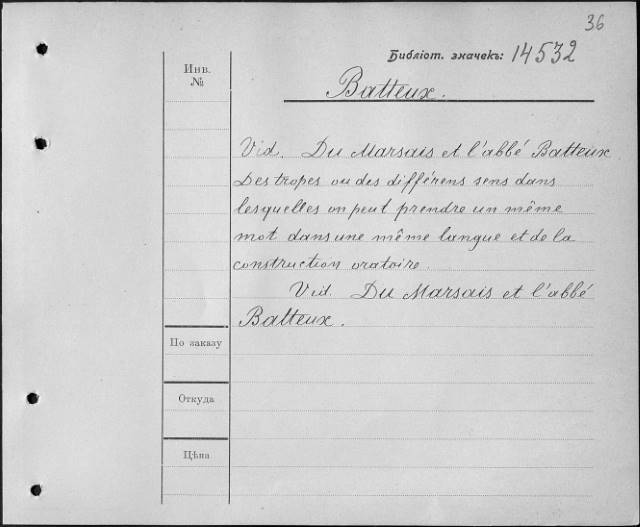 36
Библіот. значекъ: 14532
Инв.
№
Batteux.
Vid. Du Marsais et l'abbé Batteux
Des tropes ou des différens sens dans
lesquelles on peut prendre un même
mot dans une même langue et de la
construction oratoire.
Vid. Du Marsais et l'abbé
Batteux.
По заказу
Откуда
Цѣна